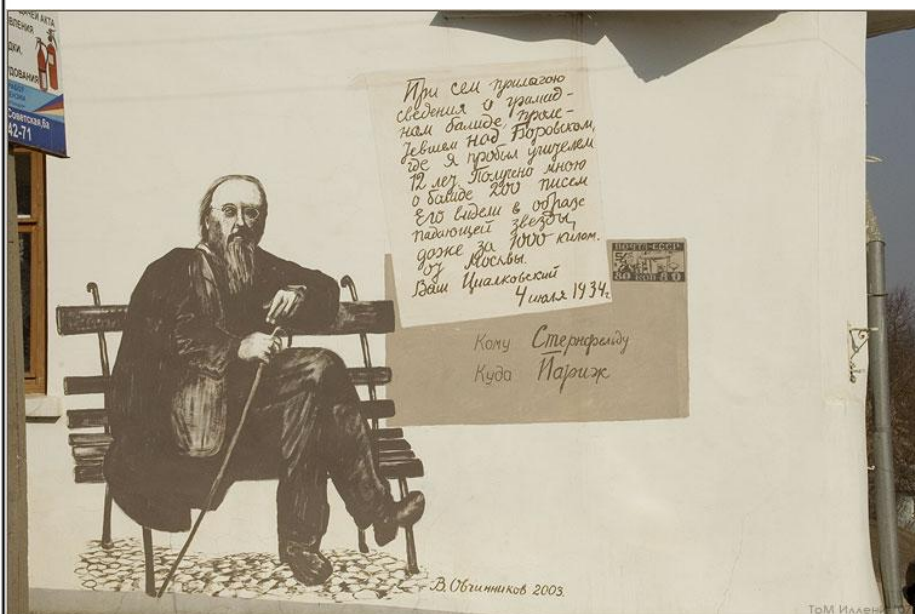 ЧЕЙ АКТА
ВЛЕНИЯ
ДКИ,
УДОВАНИЯ
Советская,6а
42-71
При сем прилагаю
сведения о громад-
нам балиде, проле-
тевшем над Боровском,
где я пробыл учителем
12 лет. Получено мною
о балиде 200 писем
Его видели в образе
падающей звезды,
даже за 1000 килом.
от Москвы.
Ваш Циалковский
4 июля 1934г.
ПОЧТА-СССР
80 КОП 80
Кому Стернфельду
Куда Париж
В. Овчинников 2003.
ТоМ